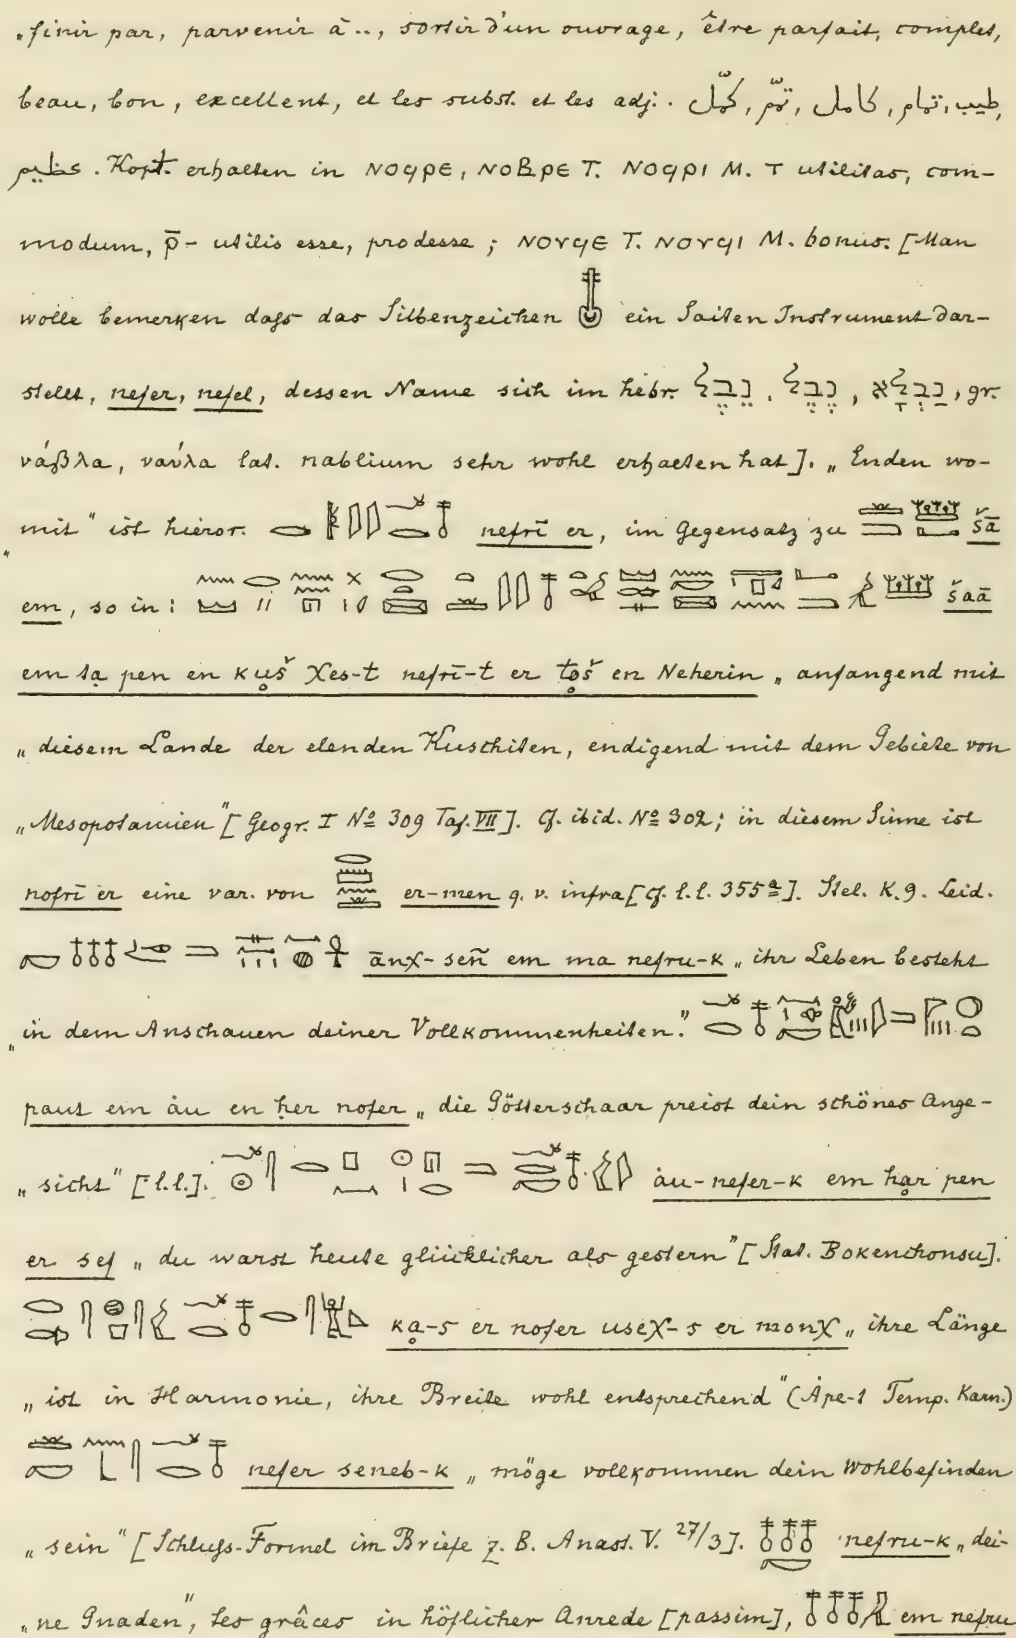 „finir par, parvenir à .., sortir d'un ouvrage, être parfait, complet,
beau, bon, excellent, et les subst. et les adj. كمّل, تمّم, كامل, تمام, طيب,
عظيم. Kopt. erhalten in ⲛⲟϥⲣⲉ, ⲛⲟⲃⲣⲉ T. ⲛⲟϥⲣⲓ M. ⲧ utilitas, com-
modum, ⲣ̄- utilis esse, prodesse; ⲛⲟⲩϥⲉ T. ⲛⲟⲩϥⲓ M. bonus. [Man
wolle bemerken dass das Silbenzeichen 𓄤 ein Saiten Instrument dar-
stellt, nefer, nefel, dessen Name sich im hebr. נֵבֶל, נֶבֶל, נַבְלָא, gr.
νάβλα, ναύλα lat. nablium sehr wohl erhalten hat]. „Enden wo-
„mit" ist hierogr. nefrī er, im Gegensatz zu šā
em, so in: šaā
em ta pen en kuš χes-t nefrī-t er toš en Neherin „anfangend mit
„diesem Lande der elenden Kuschiten, endigend mit dem Gebiete von
„Mesopotamien" [Geogr. I Nº 309 Taf. VII]. Cf. ibid. Nº 302; in diesem Sinne ist
nofrī er eine var. von er-men q. v. infra [cf. l.l. 355ª]. Stel. K.9. Leid.
ānχ-señ em ma nefru-k „ihr Leben besteht
„in dem Anschauen deiner Vollkommenheiten."
paut em áu en ḥer nofer „die Götterschaar preist dein schönes Ange-
„sicht" [l.l.]. áu-nefer-k em har pen
er sef „du warst heute glücklicher als gestern" [Stat. Bokenchonsu].
ka-s er nofer useχ-s er monχ „ihre Länge
„ist in Harmonie, ihre Breite wohl entsprechend" (Ápe-t Temp. Karn.)
nefer seneb-k „möge vollkommen dein Wohlbefinden
„sein" [Schluss-Formel im Briefe z. B. Anast. V. 27/3]. nefru-k „dei-
„ne Gnaden", les grâces in höflicher Anrede [passim], em nefru